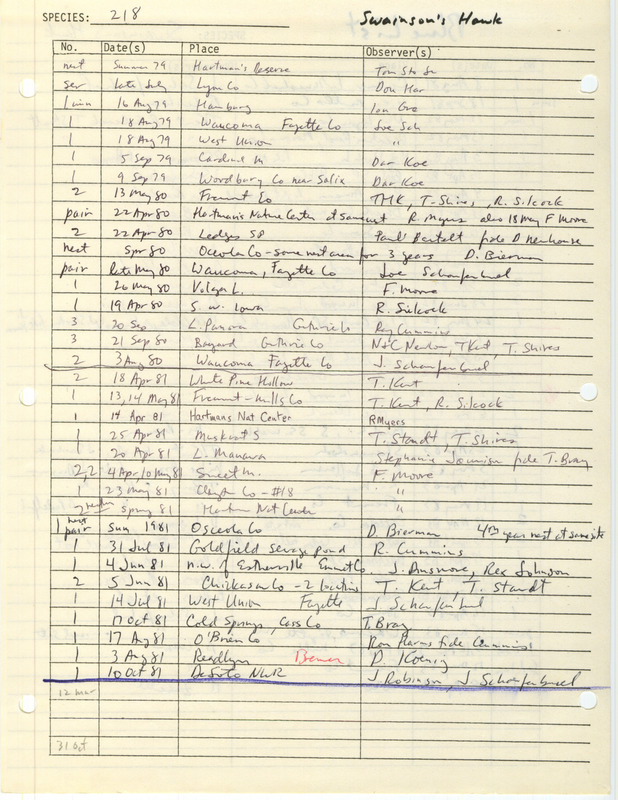 SPECIES: 218 Swainson's Hawk
No. Date(s) Place Observer(s)
nest Summer 79 Hartman's Reserve
ser late July Lyon Co Don Har
1 imm 16 Aug 79 Hamburg Ion Gro
1 18 Aug 79 Waucoma Fayette Co Joe Sch
1 18 Aug 79 West Union "
1 5 Sep 79 Cardinal M Dar Koe
1 9 Sep 79 Woodbury Co near Salix Dar Koe
2 13 May 80 Fremont Co THK, T. Shires, R. Silcock
pair 22 Apr 80 Hartman's Nature Center at same nest R Myers also 18 May F Moore
2 22 Apr 80 Ledges SP Paul Bartelt fide D Newhouse
nest Spr 80 Osceola Co - same nest area for 3 years D. Bierman
pair late May 80 Waucoma, Fayette Co Joe Schaufenbuel
1 26 May 80 Volga L. F. Moore
1 19 Apr 80 S.W. Iowa R. Silcock
3 20 Sep L. Panora Guthrie Co Ray Cummins
3 21 Sep 80 Bayard Guthrie Co N+C Newlon, T Kent, T. Shires
2 3 Aug 80 Waucoma Fayette Co J. Schaufenbuel
2 18 Apr 81 White Pine Hollow T. Kent
1 13, 14 May 81 Fremont - Mills Co T. Kent, R. Silcock
1 14 Apr 81 Hartmans Nat Center R Myers
1 25 Apr 81 Muskrat S T. Standt, T. Shires
1 20 Apr 81 L. Manawa Stephanie fide T. Bray
2,2 4 Apr, 10 May 81 Sweet M. F. Moore
1 23 May 81 Clayton Co - #18 "
spring 81 Hartman Nat Center "
1 nest pair Sum 1981 Osceola Co D. Bierman 4th year nest at same site
1 31 Jul 81 Goldfield sewage pond R. Cummins
1 4 Jun 81 n.w. of Estherville Emmet Co J. Dinsmore, Rex Johnson
2 5 Jun 81 Chickasaw Co - 2 locations T. Kent, T. Standt
1 14 Jul 81 West Union Fayette J. Schaufenbuel
1 17 Oct 81 Cold Springs, Cass Co T. Bray
1 17 Aug 81 O'Brien Co Ron Harms fide Cummins
1 3 Aug 81 Readlyn Bremer D. Koenig
1 10 Oct 81 DeSoto NWR J. Robinson, J. Schaufenbuel
12 mar
31 Oct